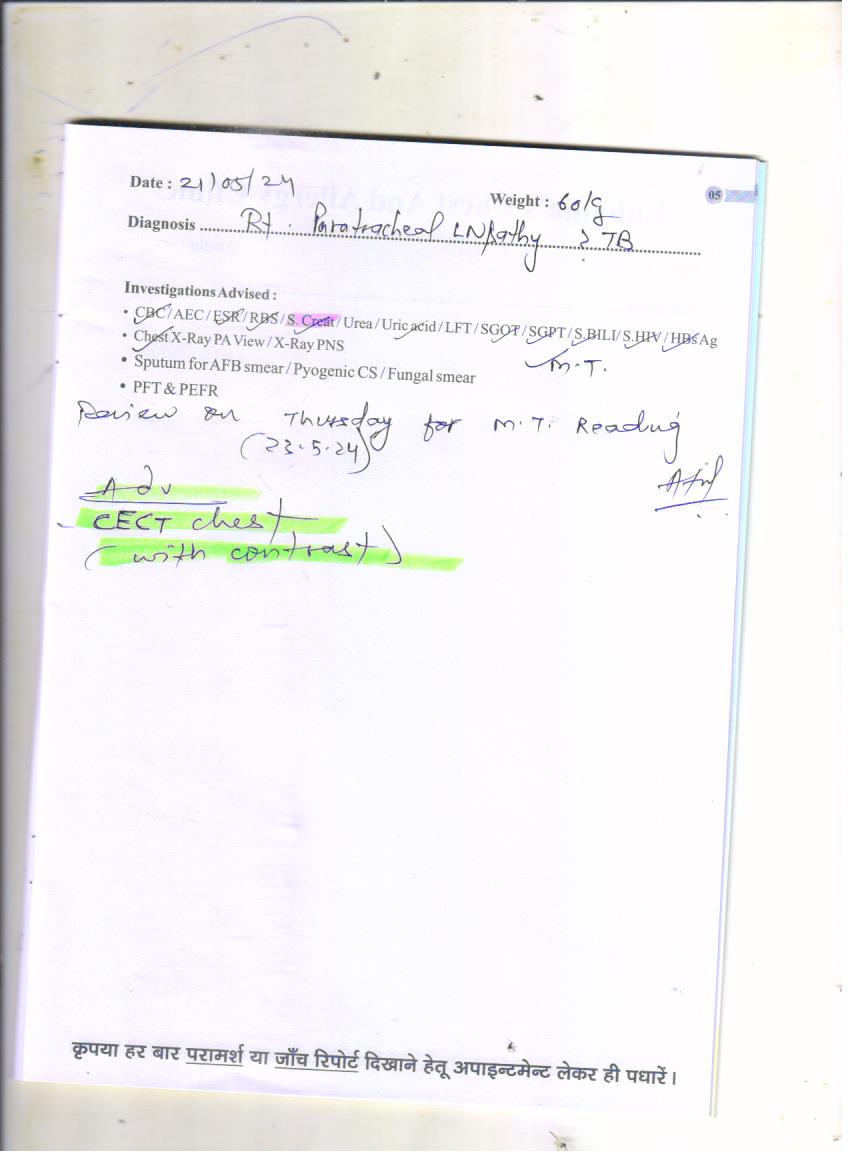 Date : 21/05/24
Weight : 60kg
05
Diagnosis Rt. Paratracheal LNpathy ? TB
Investigations Advised :
• CBC/AEC/ESR/RBS/S. Creat/Urea/Uric acid/LFT/SGOT/SGPT/S.BILI/S.HIV/HBsAg
• Chest X-Ray PA View/X-Ray PNS
M.T.
• Sputum for AFB smear/Pyogenic CS/Fungal smear
• PFT & PEFR
Review on Thursday for M.T. Reading
(23.5.24)
Adv
CECT chest
(with contrast)
कृपया हर बार परामर्श या जाँच रिपोर्ट दिखाने हेतू अपाइन्टमेन्ट लेकर ही पधारें।